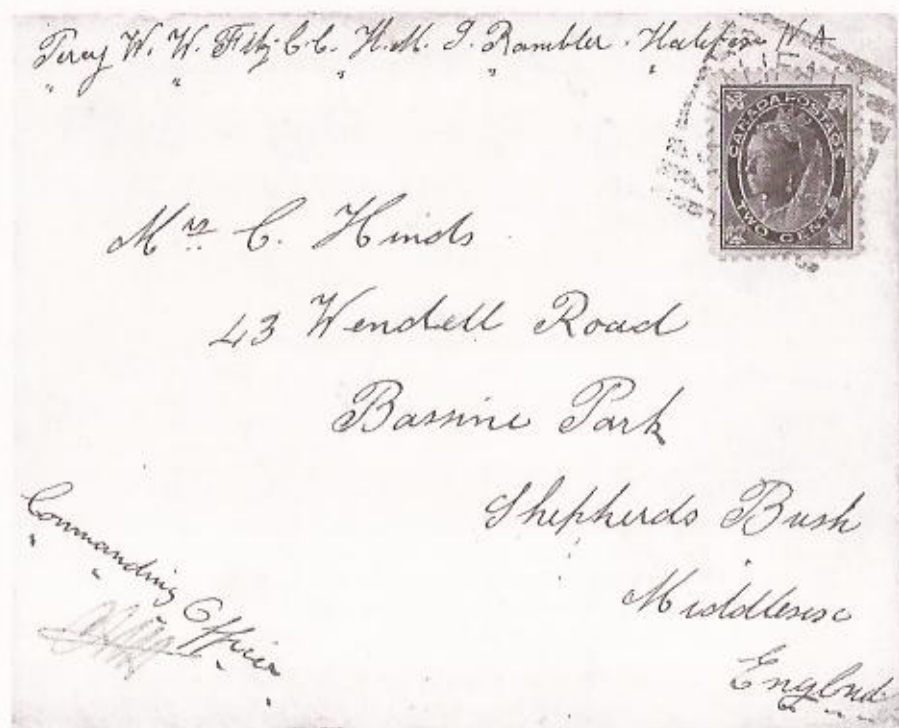 Percy W. W. Fitz C.C. H.M.S. Rambler. Halifax N A
CANADA POSTAGE
TWO CENTS
Mrs C. Hinds
43 Wendell Road
Bassine Park
Shepherds Bush
Middlesex
England
Commanding Officer